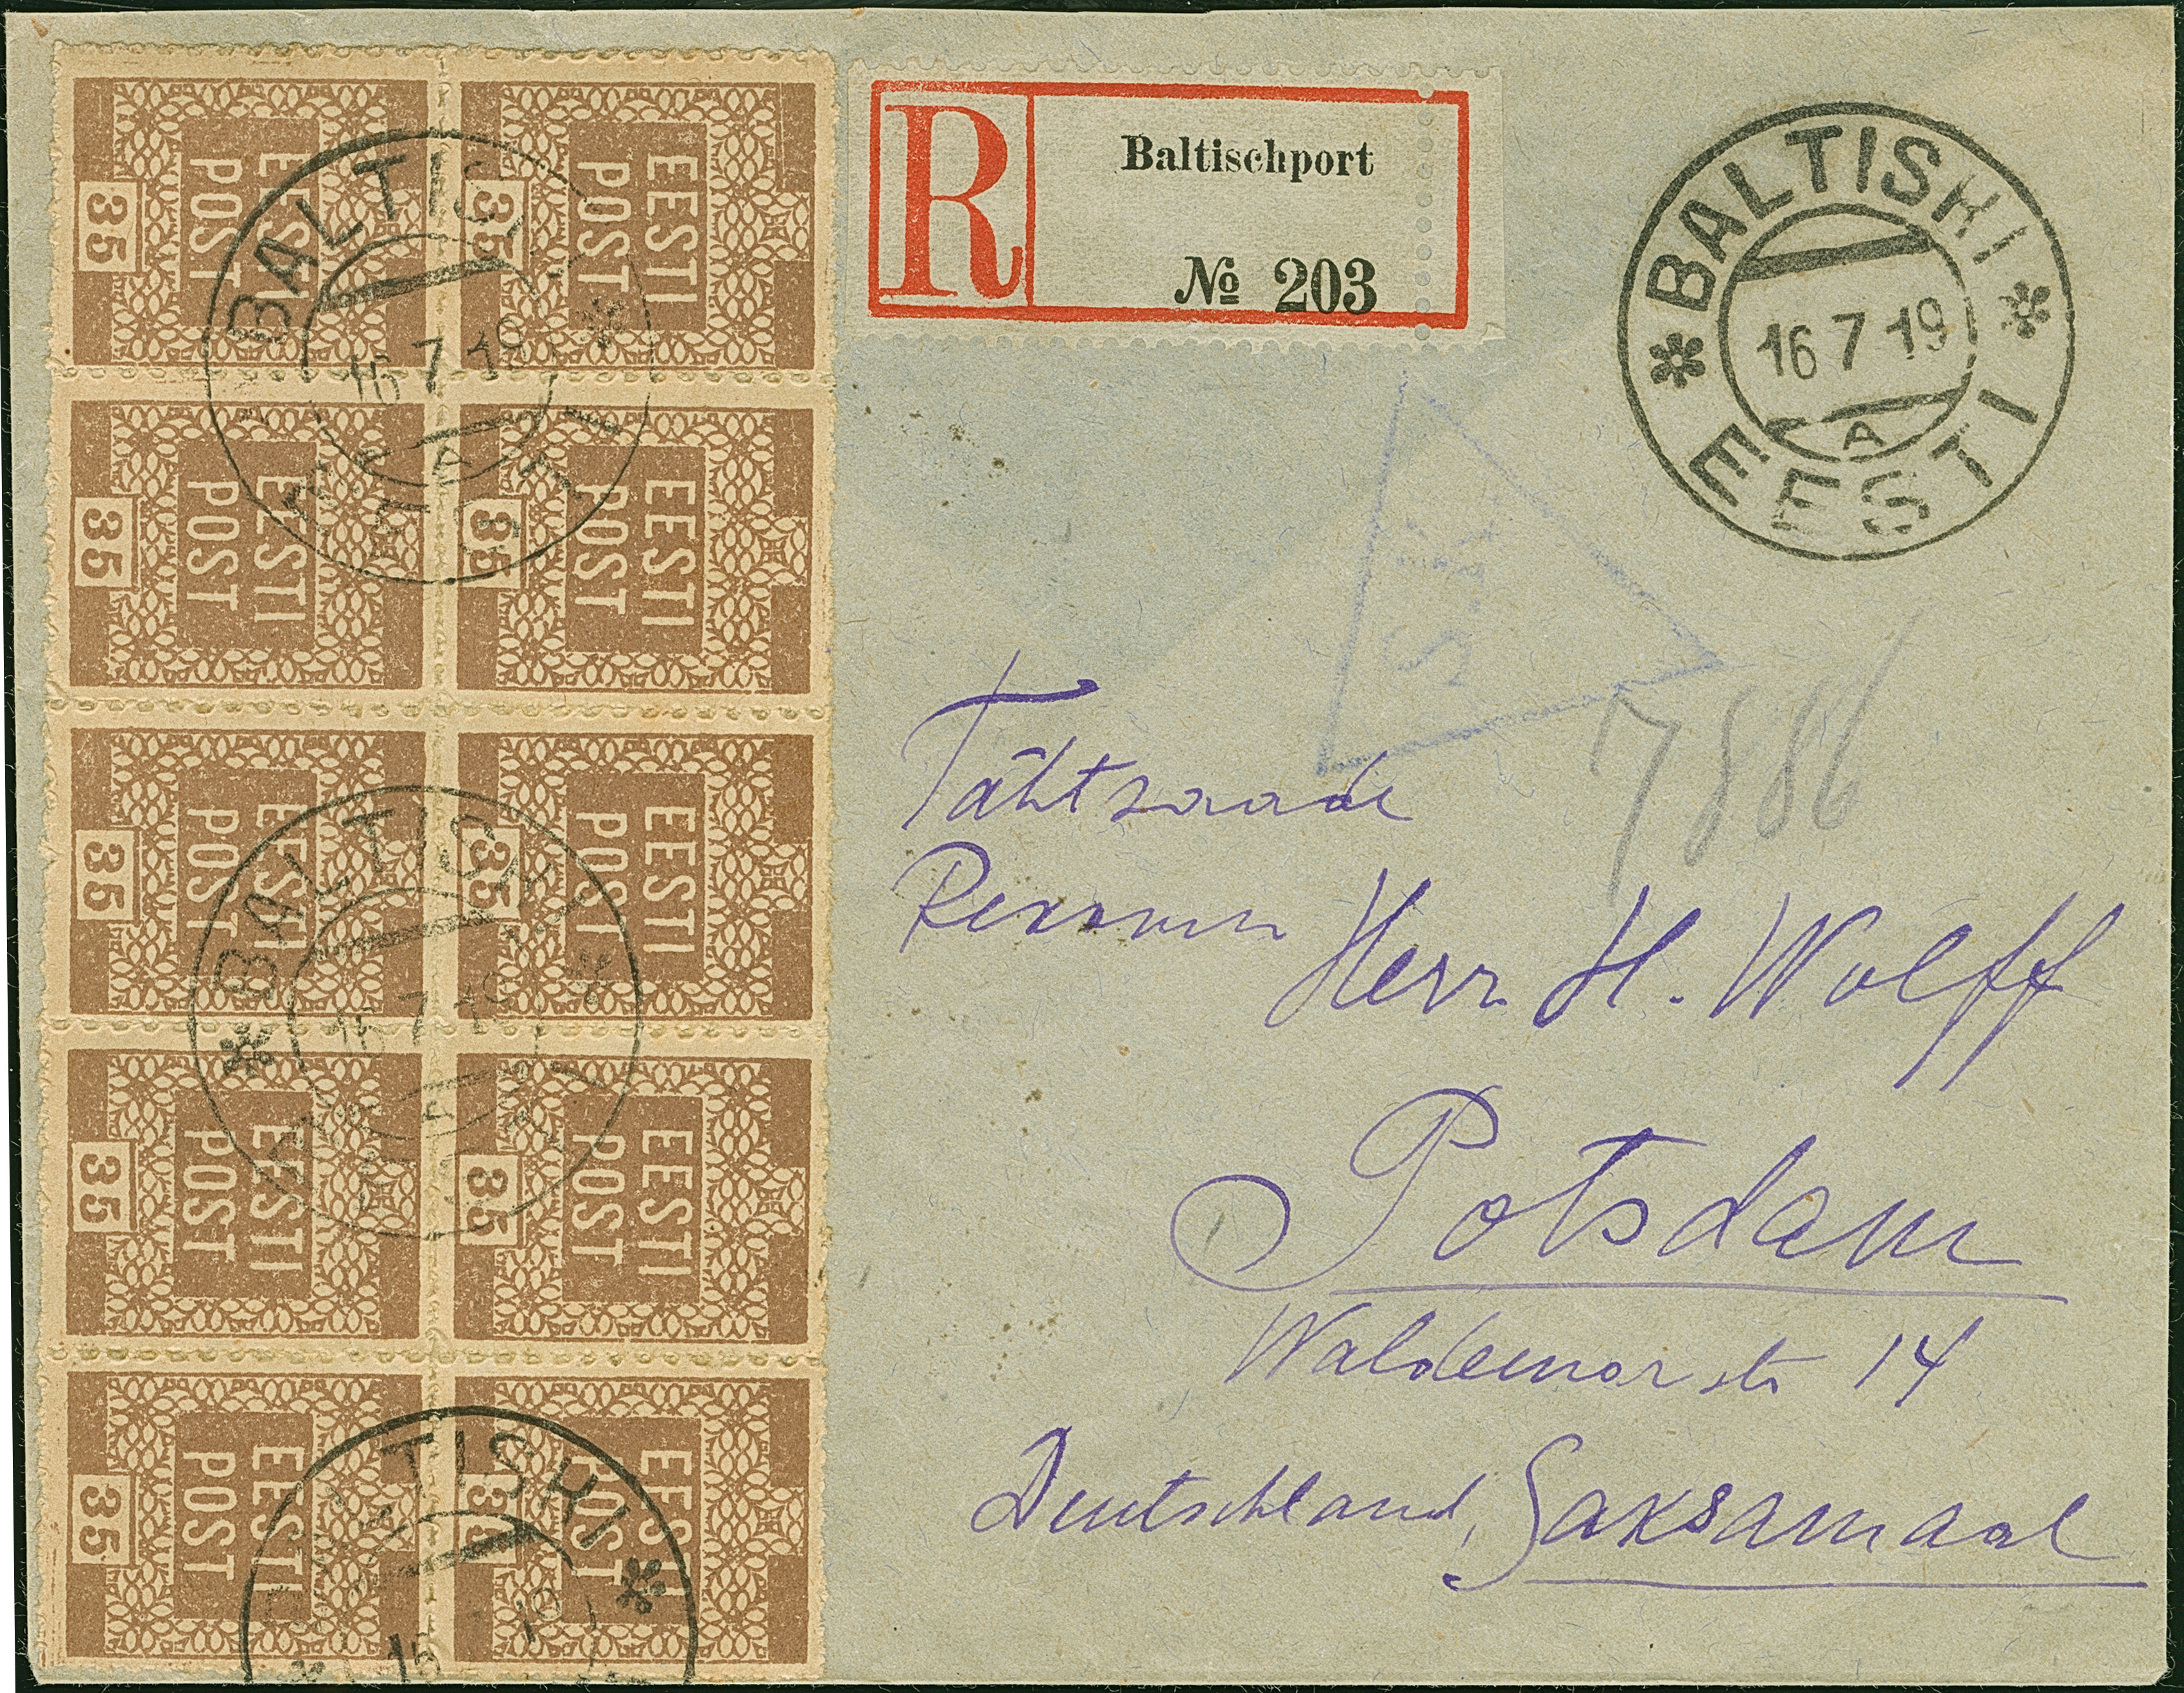 EESTI POST 35
EESTI POST 35
EESTI POST 35
EESTI POST 35
EESTI POST 35
EESTI POST 35
EESTI POST 35
EESTI POST 35
EESTI POST 35
EESTI POST 35
BALTISKI
16 7 19
A
EESTI
BALTISKI
16 7 19
A
EESTI
TISKI
16 19
R
Baltischport
№ 203
BALTISKI
16 7 19
A
EESTI
7886
Tähtsaade
Herr H. Wolff
Potsdam
Waldemarstr 14
Deutschland, Saksamaal